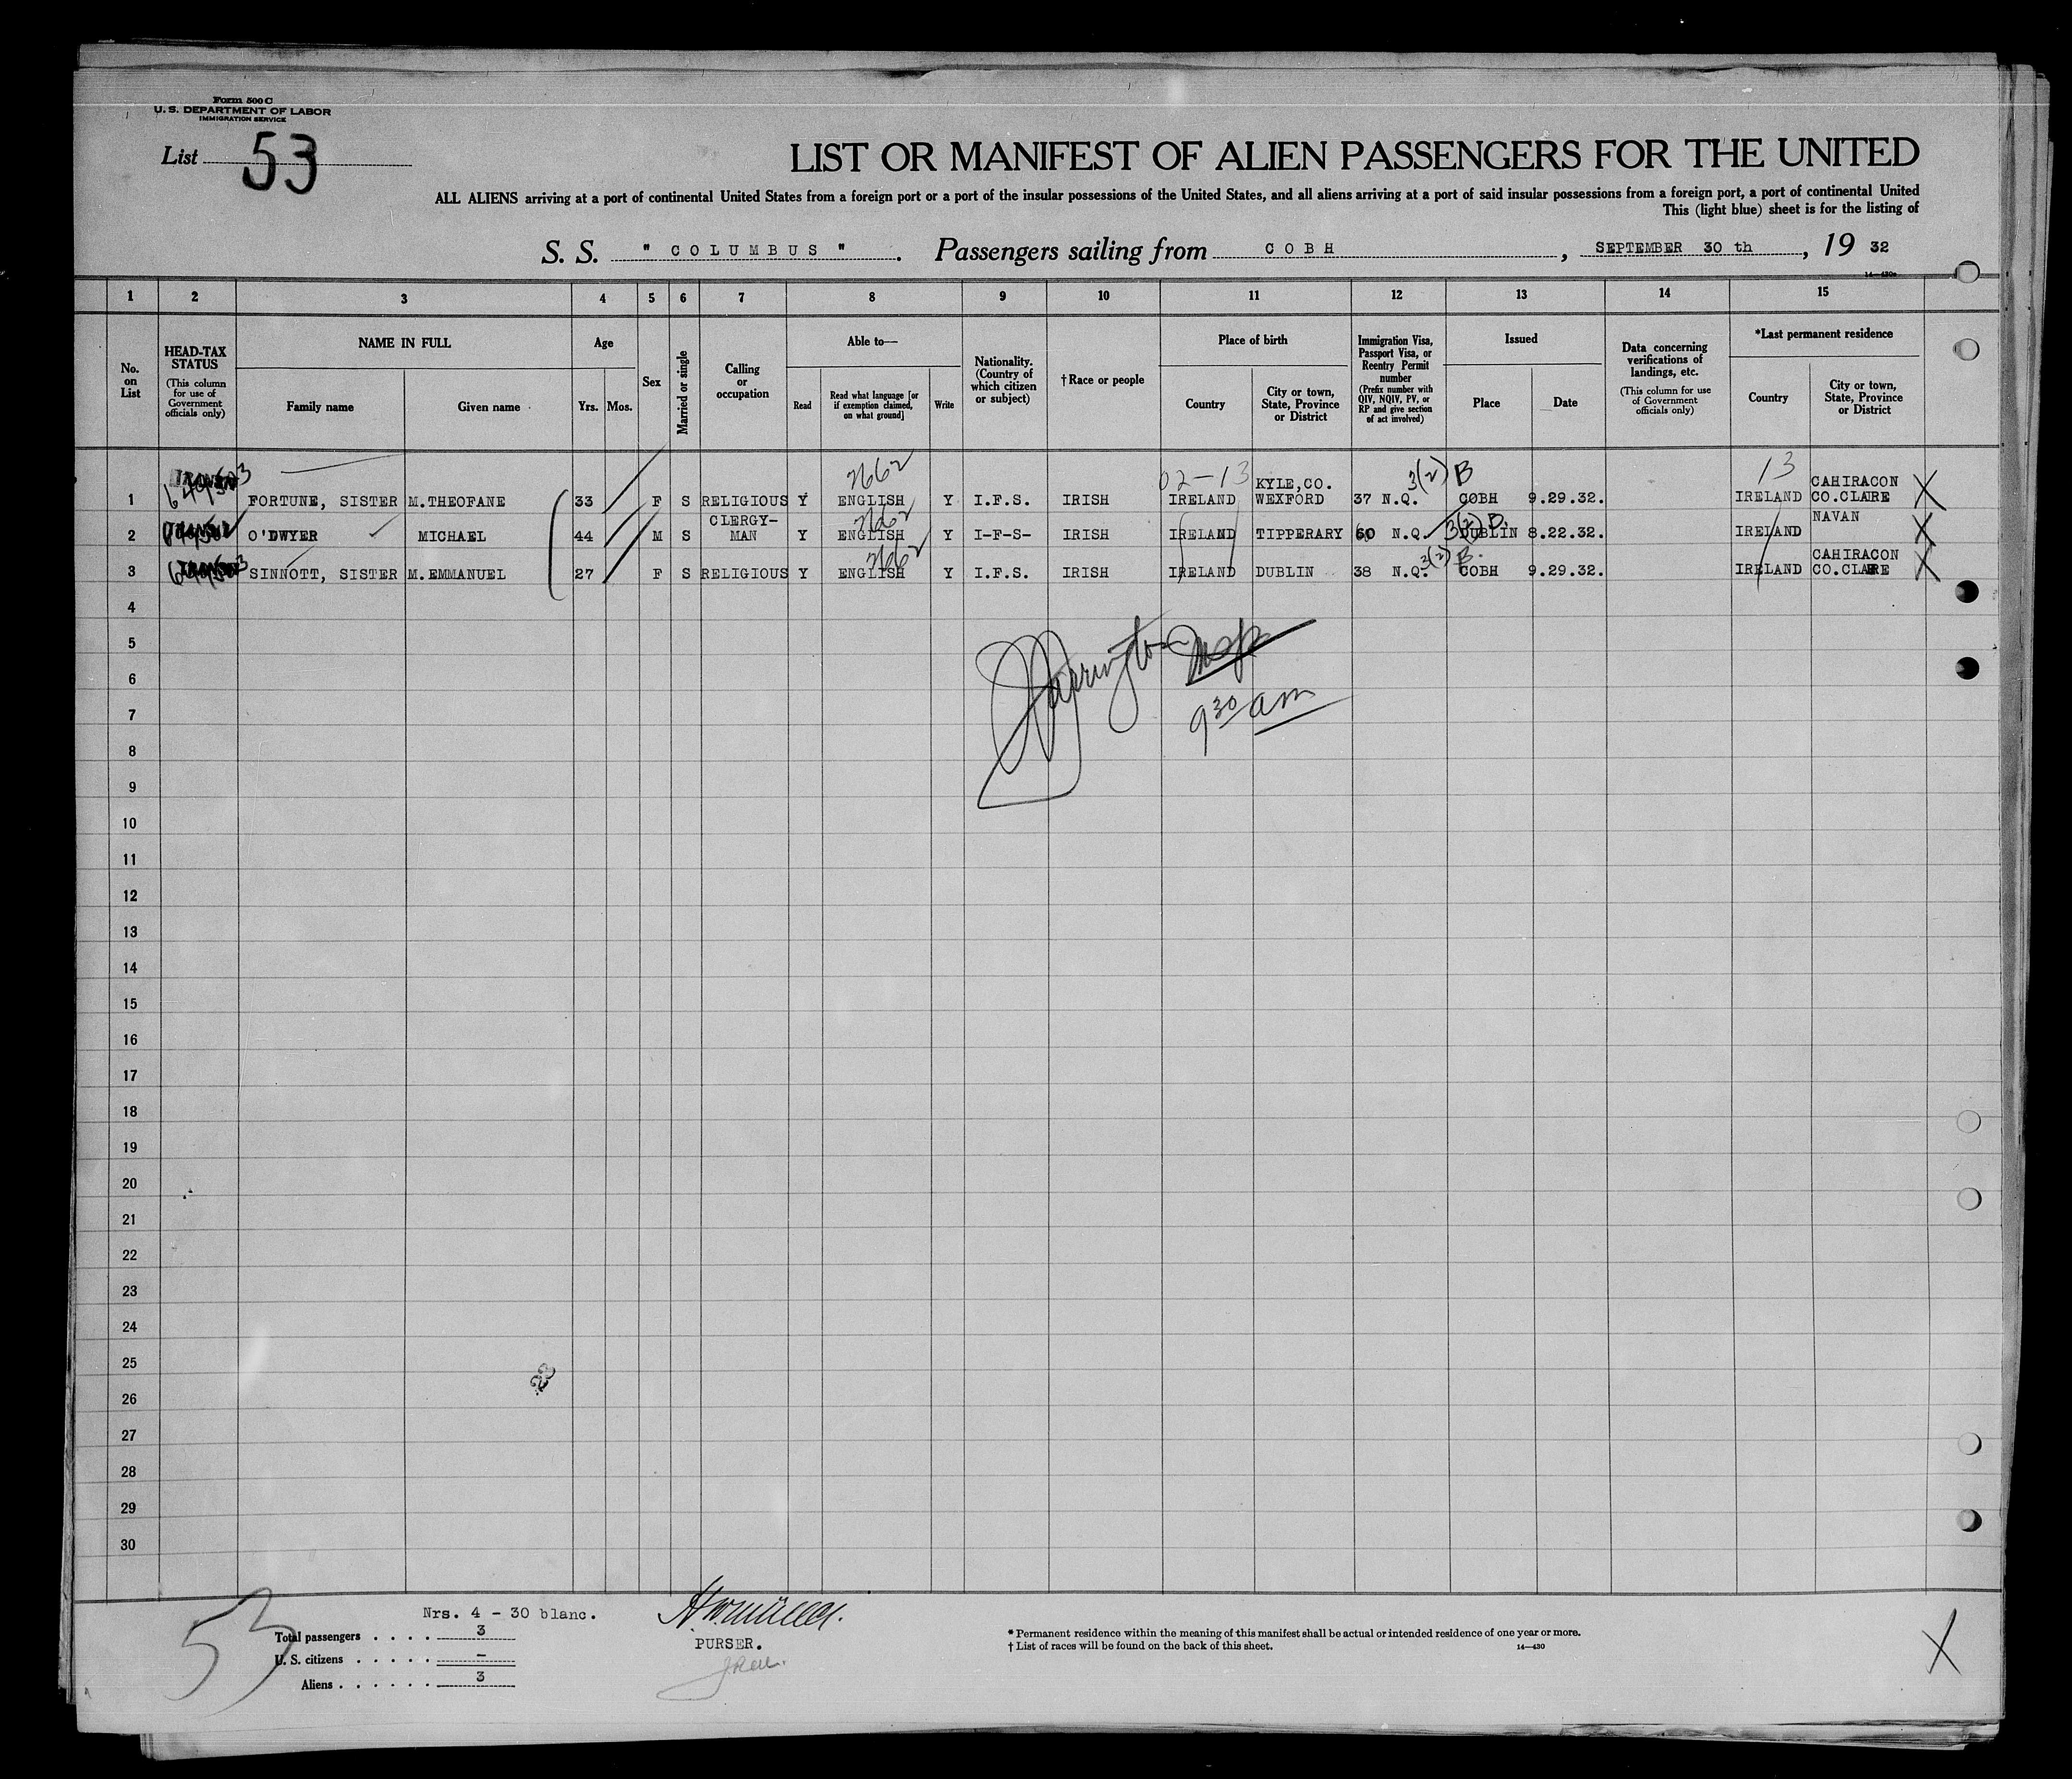 Form 500 C
U. S. DEPARTMENT OF LABOR
IMMIGRATION SERVICE
List 53
LIST OR MANIFEST OF ALIEN PASSENGERS FOR THE UNITED
ALL ALIENS arriving at a port of continental United States from a foreign port or a port of the insular possessions of the United States, and all aliens arriving at a port of said insular possessions from a foreign port, a port of continental United
This (light blue) sheet is for the listing of
S. S. " COLUMBUS " . Passengers sailing from COBH , SEPTEMBER 30 th , 19 32
1 2 3 4 5 6 7 8 9 10 11 12 13 14 15
No. on List
HEAD-TAX STATUS
(This column for use of Government officials only)
NAME IN FULL
Family name
Given name
Age
Yrs. Mos.
Sex
Married or single
Calling or occupation
Able to—
Read
Read what language [or if exemption claimed, on what ground]
Write
Nationality. (Country of which citizen or subject)
†Race or people
Place of birth
Country
City or town, State, Province or District
Immigration Visa, Passport Visa, or Reentry Permit number
(Prefix number with QIV, NQIV, PV, or RP and give section of act involved)
Issued
Place
Date
Data concerning verifications of landings, etc.
(This column for use of Government officials only)
*Last permanent residence
Country
City or town, State, Province or District
2662 02-13 3(2) B 13
1 FORTUNE, SISTER M.THEOFANE 33 F S RELIGIOUS Y ENGLISH Y I.F.S. IRISH IRELAND KYLE,CO. WEXFORD 37 N.Q. COBH 9.29.32. IRELAND CAHIRACON CO.CLARE X
2662 3(2) B.
2 O'DWYER MICHAEL 44 M S CLERGY-MAN Y ENGLISH Y I-F-S- IRISH IRELAND TIPPERARY 60 N.Q. DUBLIN 8.22.32. IRELAND NAVAN X
2662 3(2) B.
3 SINNOTT, SISTER M.EMMANUEL 27 F S RELIGIOUS Y ENGLISH Y I.F.S. IRISH IRELAND DUBLIN 38 N.Q. COBH 9.29.32. IRELAND CAHIRACON CO.CLARE X
4
5
Harrington Insp
6
7
9 30 am
8
9
10
11
12
13
14
15
16
17
18
19
20
21
22
23
24
25
26
27
28
29
30
53
Nrs. 4 - 30 blanc.
Total passengers . . . . 3
U. S. citizens . . . . . –
Aliens . . . . . . 3
PURSER.
* Permanent residence within the meaning of this manifest shall be actual or intended residence of one year or more.
† List of races will be found on the back of this sheet.
14—430
X